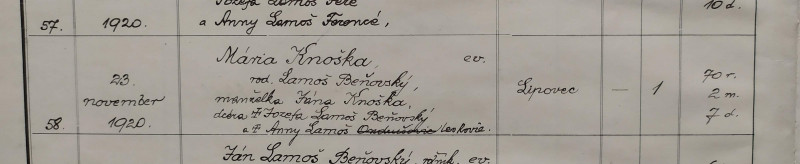 Jozefa Lamoš Fere
10 d.
57. 1920. a Anny Lamoš Ferencé,
Mária Knoška, ev.
23. rod. Lamoš Beňovský, Lipovec — 1 70 r.
november manželka Jána Knoška, 2 m.
dcéra † Jozefa Lamoš Beňovský 7 d.
58. 1920. a † Anny Lamoš Leskovie.
Ján Lamoš Beňovský, ev.